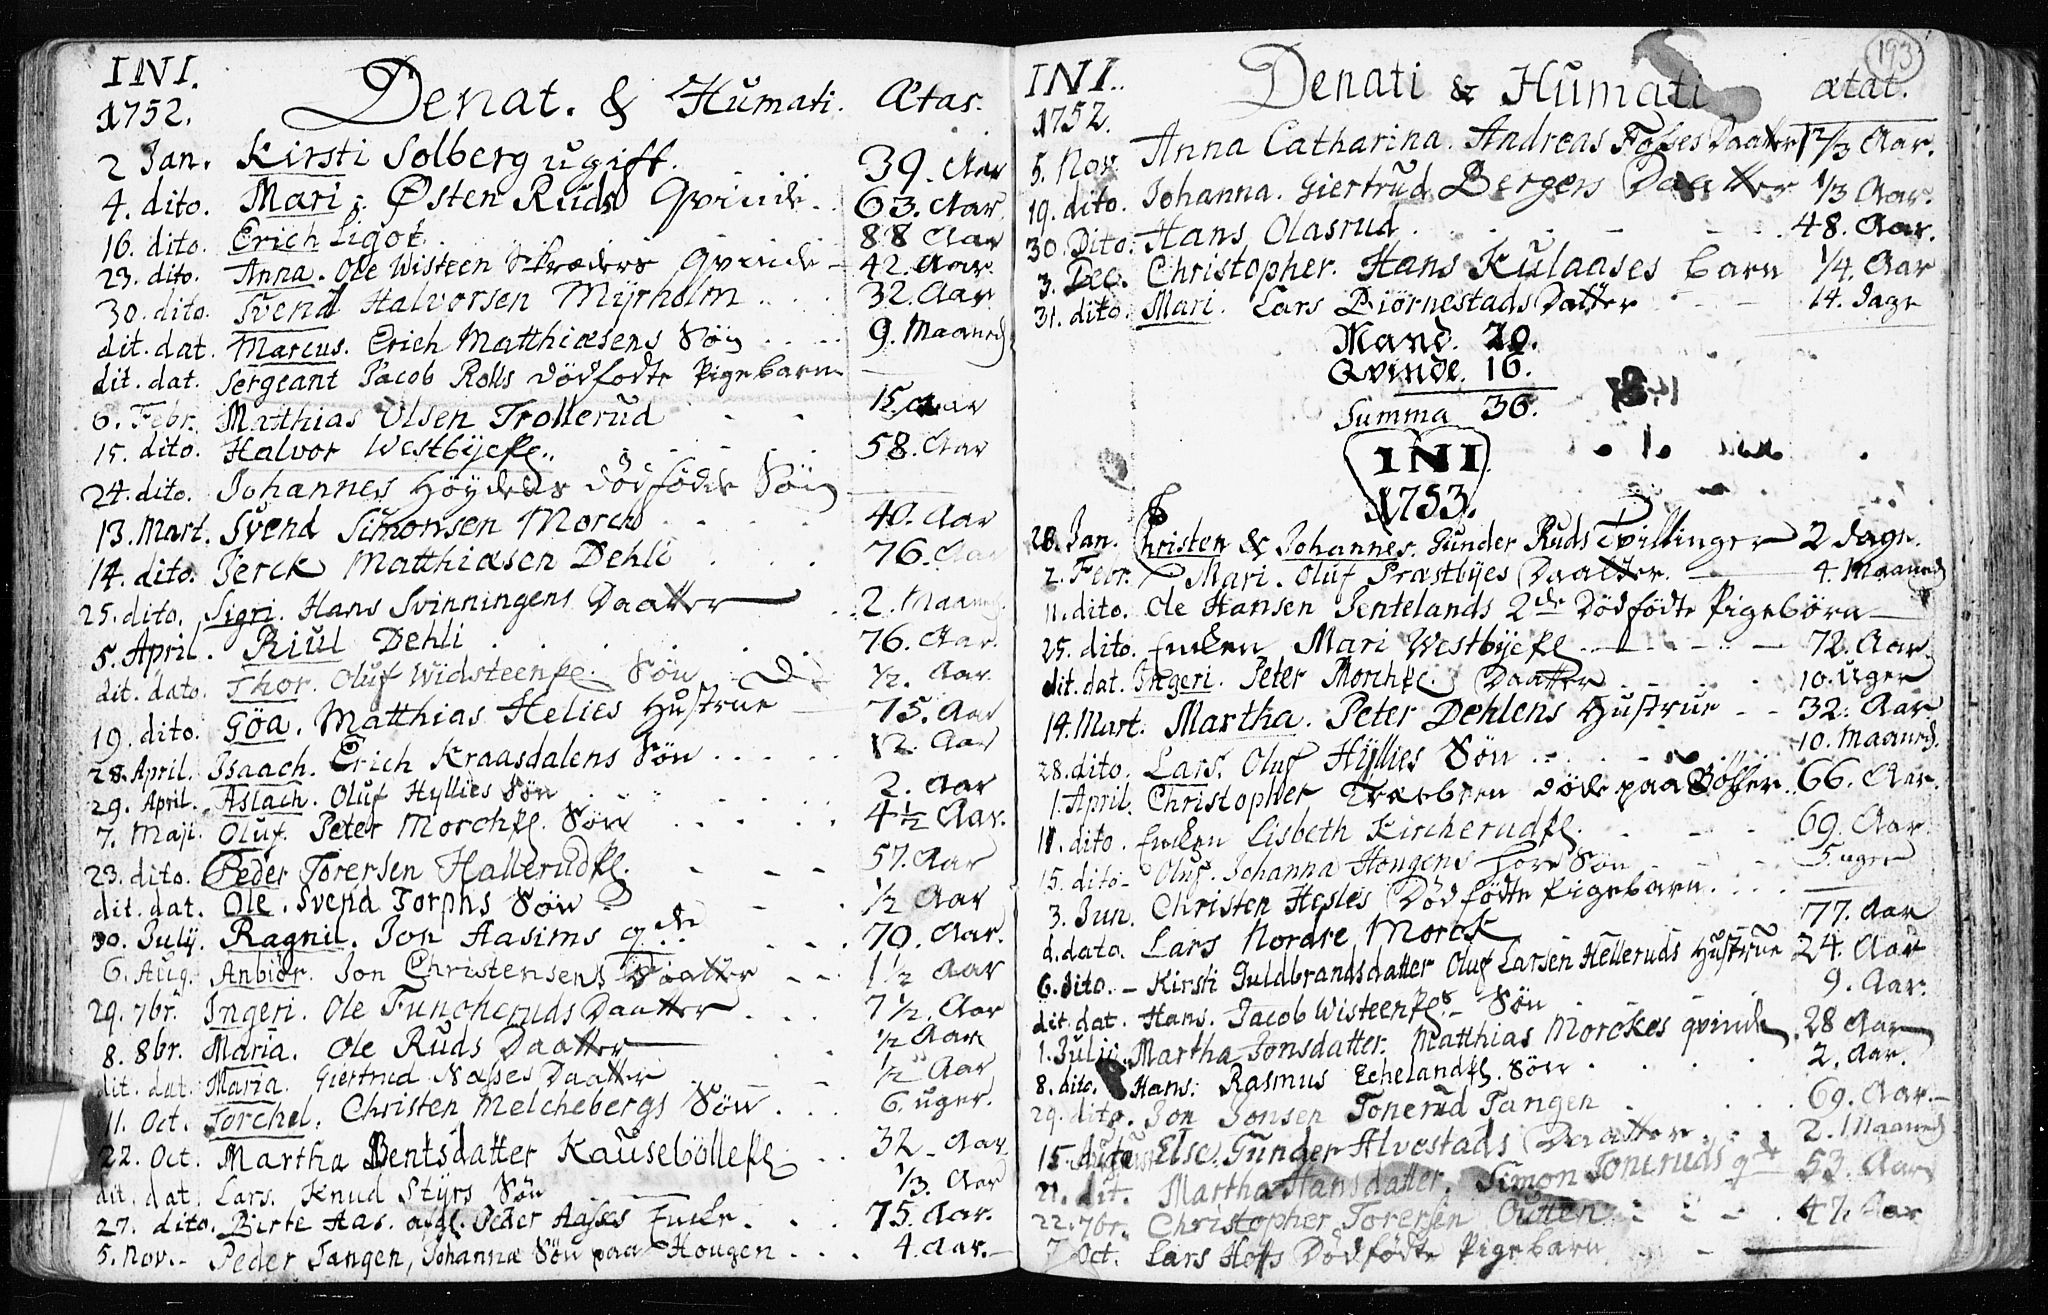 INI.
1752. Denat. & Humati. Ætas.
2 Jan. Kirsti Solberg ugift. 39. Aar
4. dito. Mari. Østen Ruds Qvinde. 63. Aar
16. dito. Erich Ligot. 88 Aar
23. dito. Anna. Ole Wisteen Skræders Qvinde 42. Aar.
30. dito. Svend Halvorsen Myrholm 32. Aar
dit. dat. Marcus. Erich Matthiæsens Søn 9. Maaned
dit. dat. Sergeant Jacob Rolls dödfödte Pigebarn
6. Febr. Matthias Olsen Trollerud 15. Aar
15. dito. Halvor Westbyeje. 58. Aar
24. dito. Johannes Höydens dödfödde Sön
13. Mart. Svend Simonsen Morch 40. Aar
14. dito. Jerck Matthiæsen Dehli 76. Aar
25. dito. Sigri. Hans Svinningens Daatter 2. Maaned.
5. April. Riul Dehli 76. Aar.
dit. dato. Thor. Oluf Widsteenje. Sön ½. Aar.
19. dito. Göa. Matthias Helies Hustrue 75. Aar
28. April. Isaach. Erich Kraasdalens Sön 12. Aar
29. April. Aslach. Oluf Hyllies Sön 2. Aar
7. Maji. Oluf. Peter Morchje. Sön 4½ Aar.
23. dito. Peder Torersen Hallerudje. 57. Aar
dit. dat. Ole. Svend Torphs Sön ½ Aar
30. July. Ragnil. Jon Aasims qde 70. Aar.
6. Aug. Anbiör. Jon Christensens Daatter 1½ Aar
29. 7br. Ingeri. Ole Funcheruds Daatter 7½. Aar
8. 8br. Maria. Ole Ruds Daatter ½ Aar
dit. dat. Maria. Giertrud Næsses Daatter ½ Aar
11. Oct. Torchel. Christen Melchebergs Sön 6. uger.
22. Oct. Martha Bentsdatter Kausebölleje 32. Aar
dit. dat. Lars. Knud Styrs Sön ⅓. Aar
27. dito. Birte Aas. afgl. Peder Aasses Encke. 75. Aar.
5. Nov. Peder Tangen, Johannæ Sön paa Hougen 4. Aar.
193
INI.
1752. Denati & Humati ætat.
5. Nov. Anna Catharina. Andreas Fosses Daatter 1 2/3 Aar.
19. dito. Johanna. Giertrud Bergers Daatter 1/3 Aar.
30. Dito. Hans Olasrud 48. Aar.
3. Dec. Christopher. Hans Kulaases barn ¼. Aar
31. dito. Mari. Lars Biörnestads Datter 14. dage
Mand. 20.
Qvinde. 16.
Summa 36.
INI
1753.
28. Jan. Christen & Johannes. Gunder Ruds Tvillinger 2 dage.
2. Febr. Mari. Oluf Præstbyes Daatter. 4. Maaned
11. dito. Ole Hansen Jentelands 2de Dödfödte Pigebörn
25. dito. Encken Mari Westbyeje 72. Aar
dit. dat. Ingeri. Peter Morchje. Daatter 10. uger
14. Mart. Martha. Peter Dehlens Hustrue 32. Aar
28. dito. Lars. Oluf Hyllies Sön 10. Maaned.
1. April. Christopher Træebeen döde paa Bösser 66. Aar.
11. dito. Encken Lisbeth Kircherudje. 69. Aar
15. dito Oluf. Johanna Hougens Hore Sön 5. uger
3. Jun. Christen Hesles Dödfödte Pigebarn.
d. dato. Lars Nordre Morck 77. Aar
6. dito. Kirsti Guldbrandsdatter Oluf Larsen Helleruds Hustrue 24. Aar
dit. dat. Hans. Jacob Wisteenjes Sön 9. Aar.
1. Julii. Martha Jonsdatter. Matthias Morckes qvinde 28 Aar
8. dito. Hans. Rasmus Echelandje. Sön 2. Aar.
29. dito. Jon Jonsen Tonerud Tangen 69. Aar.
15. August Else. Gunder Alvestads Daatter 2. Maaned
21. dit. Martha Hansdatter. Simon Toneruds qde 53. Aar
22. 7br. Christopher Torersen Outten 47. Aar
7 Oct. Lars Hoffs Dödfödte Pigebarn